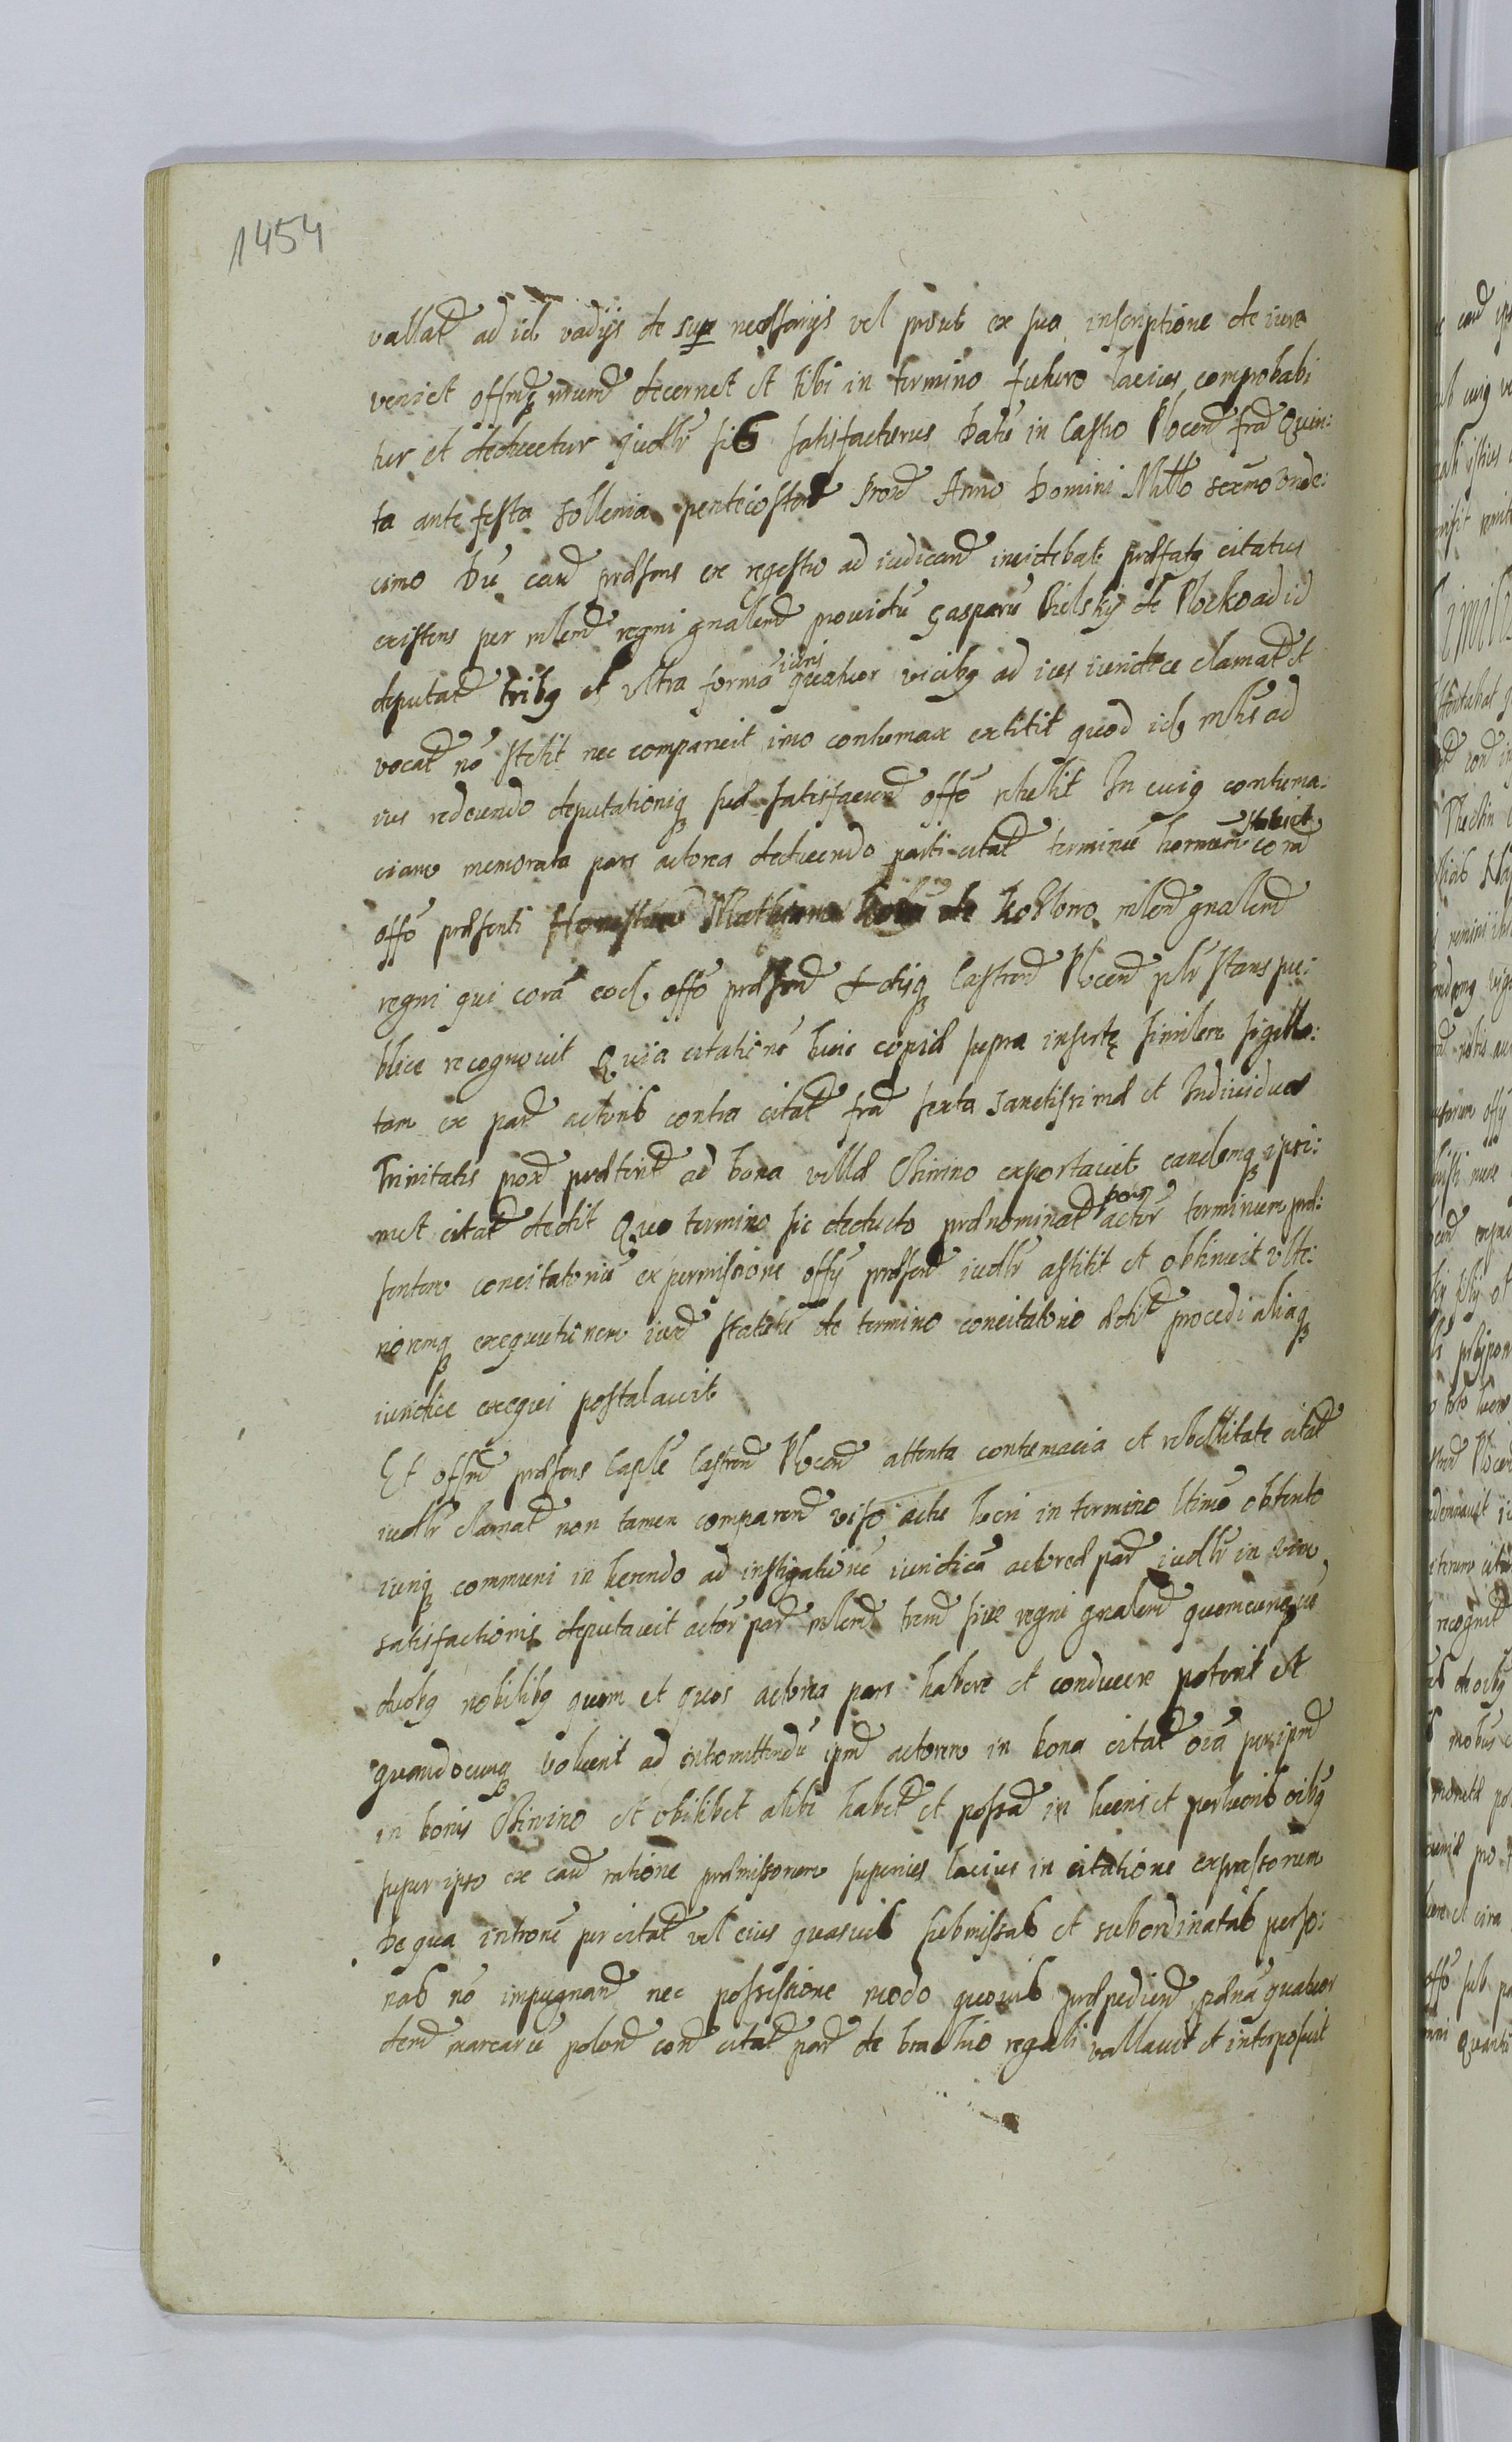 1454
vallat ad id vadijs de super necessarijs vel prout ex sua inscriptione de iure
veniet officiuq nrum decernet et tibi in termino futuro lacius comprobabi
tur et deducetur judlr sis satisfacturus Datu in Castro Plocen fra Quin:
ta ante festa sollenia pentecosten prox Anno Domini Millo sexmo vnde:
cimo Du caus præsens ex regestro ad iudicand incidebat præfatq citatus
existens per mlem regni gnalem prouidu Gasparu Bielskj de Plocko ad id
deputat tribq et vltra forma iuris quatuor vicibq ad ius iuridice clamat et
vocat no stetit nec comparuit imo contumax extitit quod idq mlis ad
ius redeundo deputationiq suæ satisfaciend offo retulit In cuiq contuma:
ciam memorata pars actorea deducendo parti citat terminu hornum statuit cora
offo præsenti de Koblono mlem gnalem
regni qui cora eod offo præsen Actisq Castren Plocen plr stans pu:
blice recognouit Quia citatione huic copiæ supra insertę similem sigilla:
tam ex par actoris contra citat fra sexta sanctissimæ et Indiuiduæ
Trinitatis prox præterit ad bona villæ exportauit eandemq ipsi:
met citat dedit Quo termino sic deducto prænominat pars actor terminum præ:
sentem concitatoriu ex permissione offij præsen iudlr astitit et obtinuit vlte:
rioremq exequutionem iux statutu de termino concitatorio ædit procedi aliaq
iuridice exequi postalauit
Et offm præsens Caple Castren Plocen attenta contumacia et rebellitate citat
iudlr clamat non tamen comparen viso actu lucri in termino ltimo obtento
iuriq communi in herendo ad instigatione iuridica actoreæ par iudlr in vim
satisfactionis deputauit actor par mlem trem siue regni gnalem quemcunque cu
duobq nobilibq quem et quos actorea pars habere et conducere poterit et
quandocunq voluerit ad intromittendu ipm actorem in bona citat oia per ipm
in bonis et vbilibet alibi habit et possa in lucris et perlucris oibq
super ipso ex caus ratione præmissorum superius lacius in citatione expressorum
De qua introne per citat vel eius quasuis submissas et subordinatas perso:
nas no impugnand nec possessione modo quouis præpediend pæna quatuor
dem marcaru polon con citat par de brachio regali vallauit et interposuit